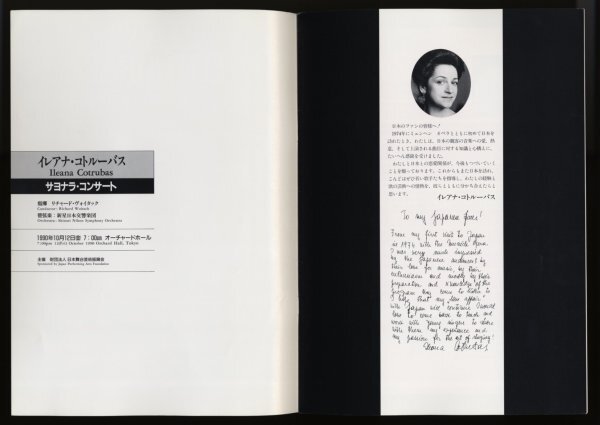 イレアナ・コトルーバス
Ileana Cotrubas
サヨナラ・コンサート
指揮 リチャード・ヴォイタック
Conductor: Richard Woitach
管弦楽：新星日本交響楽団
Orchestra: Shinsei Nihon Symphony Orchestra
1990年10月12日㊎ 7：00PM オーチャードホール
7:00pm 12(Fri) October 1990 Orchard Hall, Tokyo
主催 財団法人 日本舞台芸術振興会
Sponsored by Japan Performing Arts Foundation
日本のファンの皆様へ！
1974年にミュンヘン・オペラとともに初めて日本を
訪れたとき、わたしは、日本の観客の音楽への愛、熱
意、そして上演される曲目に対する知識と心構えに、
たいへん感銘を受けました。
わたしと日本との恋愛関係が、今後もつづいていく
ことを願っております。これからもまた日本を訪れ、
こんどはぜひ若い歌手たちを指導し、わたしの経験と
歌の芸術への情熱を、彼らとともに分かち合えたらと
思います。
イレアナ・コトルーバス
To my Japanese fans!
From my first visit to Japan
in 1974 with the Munich Opera
I was very much impressed
by the Japanese audiences by
their love for music, by their
enthusiasm and mostly by their
preparation and knowledge of the
program they come to listen to
I hope that my love affair
with Japan will continue I would
love to come back to teach and
work with young singers to share
with them my experience and
my passion for the art of singing!
Ileana Cotrubas